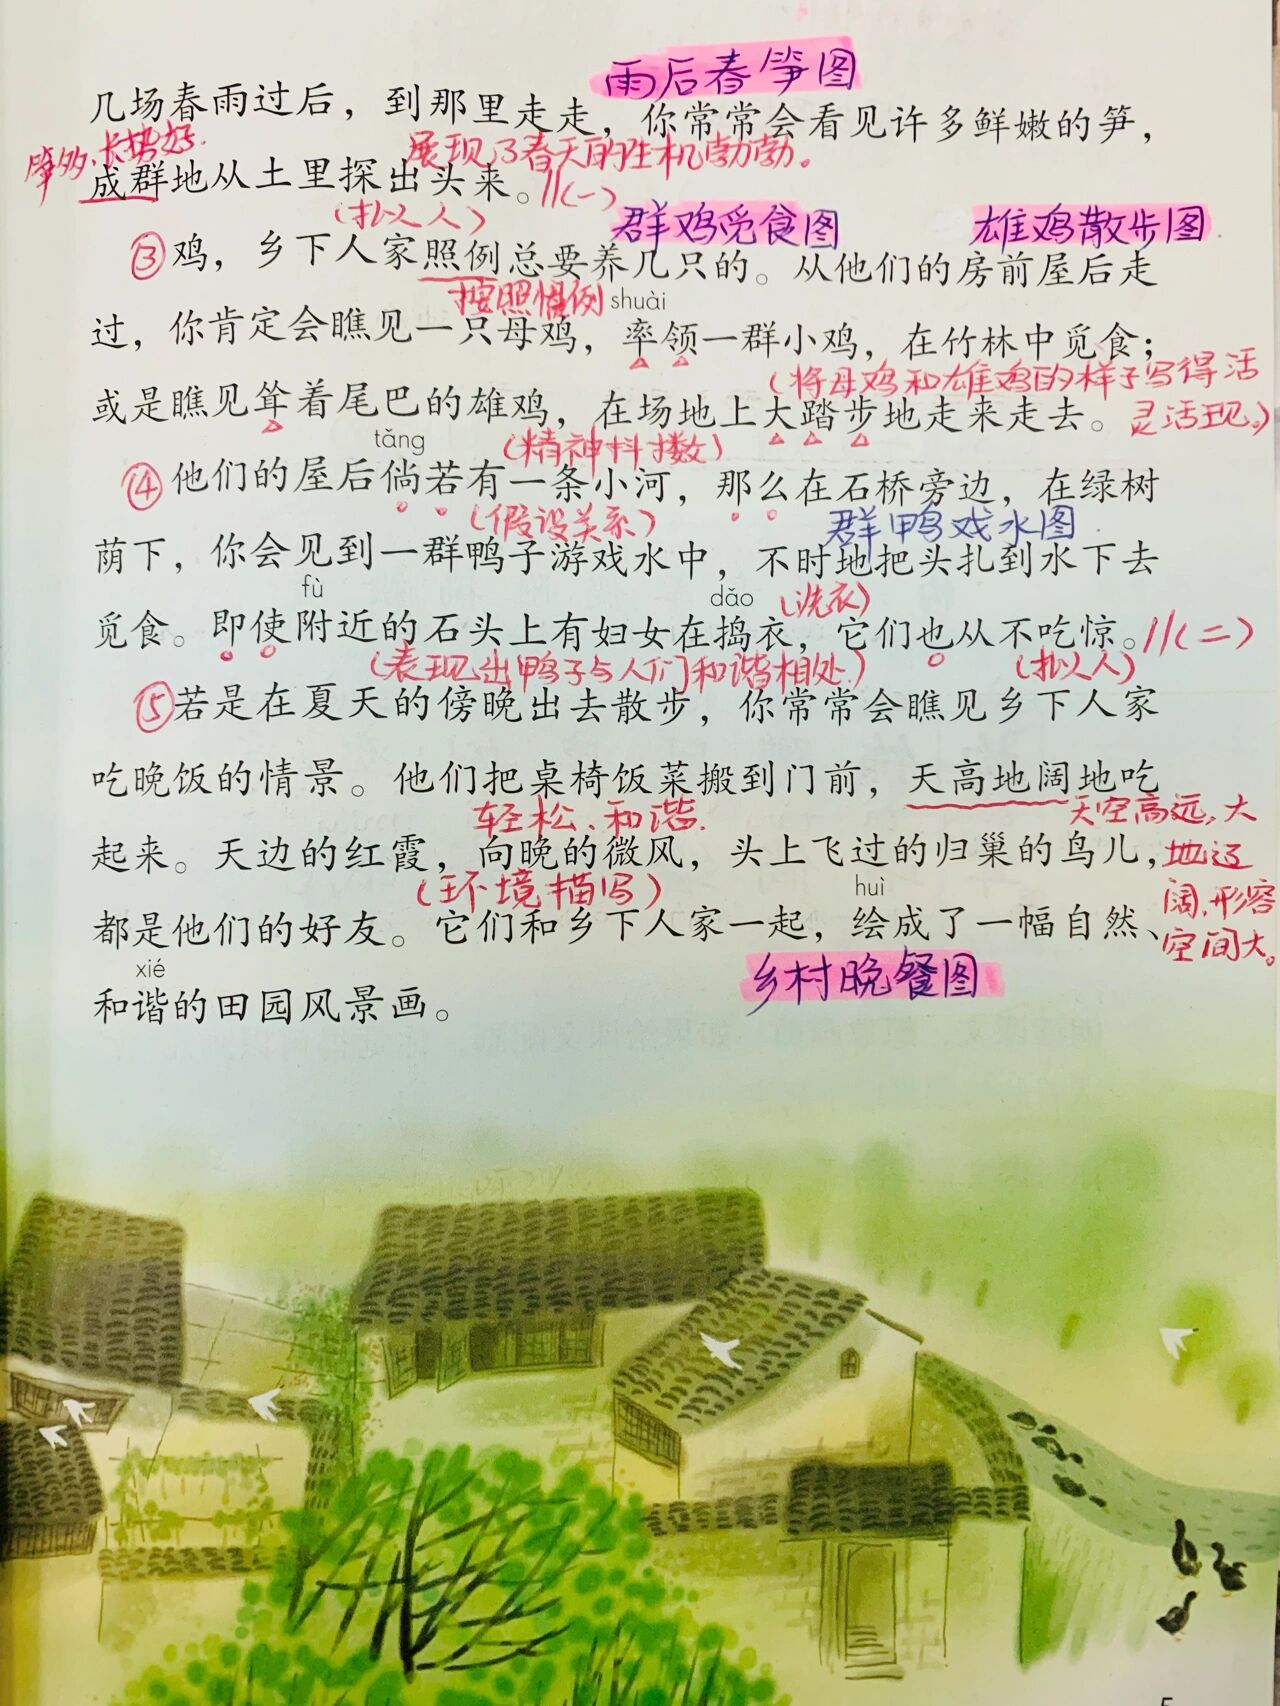 雨后春笋图
几场春雨过后，到那里走走，你常常会看见许多鲜嫩的笋，
笋多、长势好.
展现了春天的生机勃勃。
成群地从土里探出头来。//(一)
(拟人)
群鸡觅食图
雄鸡散步图
③鸡，乡下人家照例总要养几只的。从他们的房前屋后走
按照惯例
shuài
过，你肯定会瞧见一只母鸡，率领一群小鸡，在竹林中觅食；
(将母鸡和雄鸡的样子写得活
或是瞧见耸着尾巴的雄鸡，在场地上大踏步地走来走去。
灵活现。)
tǎng
(精神抖擞)
④他们的屋后倘若有一条小河，那么在石桥旁边，在绿树
(假设关系)
群鸭戏水图
荫下，你会见到一群鸭子游戏水中，不时地把头扎到水下去
fù
dǎo
(洗衣)
觅食。即使附近的石头上有妇女在捣衣，它们也从不吃惊。//(二)
(表现出鸭子与人们和谐相处)
(拟人)
⑤若是在夏天的傍晚出去散步，你常常会瞧见乡下人家
吃晚饭的情景。他们把桌椅饭菜搬到门前，天高地阔地吃
轻松、和谐.
天空高远,大
起来。天边的红霞，向晚的微风，头上飞过的归巢的鸟儿，
地辽
(环境描写)
huì
阔,形容
都是他们的好友。它们和乡下人家一起，绘成了一幅自然、
空间大。
xié
乡村晚餐图
和谐的田园风景画。
5